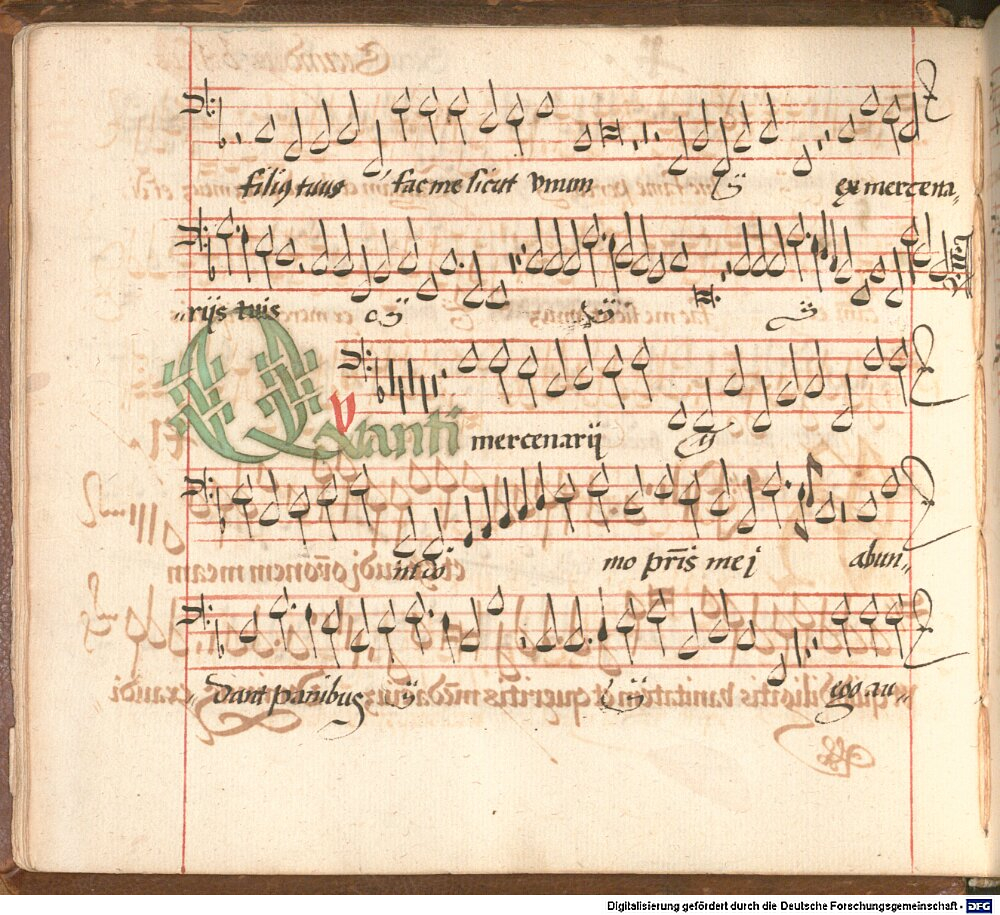 filiꝯ tuus fac me sicut vnum ij ex mercena„
„rijs tuis ij ij ij
Qvanti mercenarij ij
in do mo pr̄is mej abun„
„dant panibus ij ij ego au„
Digitalisierung gefördert durch die Deutsche Forschungsgemeinschaft - DFG